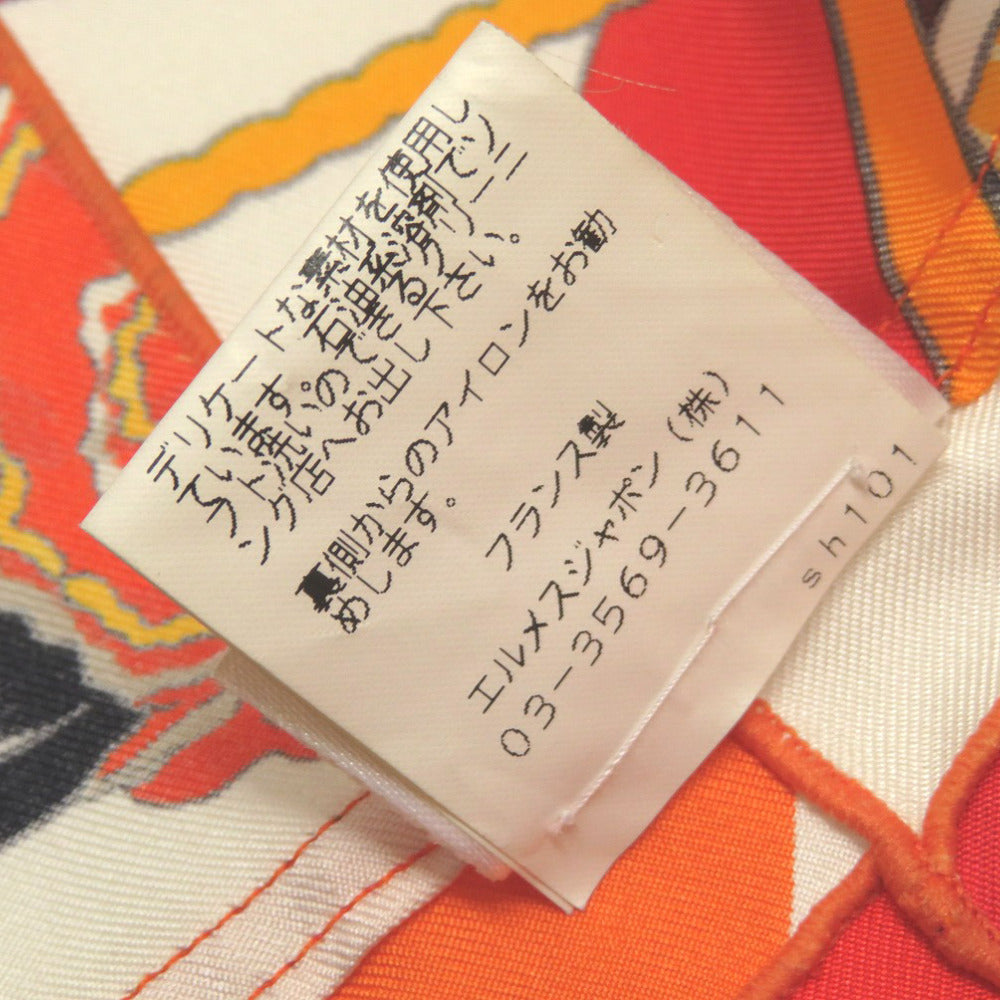 デリケートな素材を使用し
ています。石油系溶剤でソ
フト洗いのできるクリーニ
ング店へお出し下さい。
裏側からのアイロンをお勧
めします。
フランス製
エルメスジャポン(株)
03-3569-3611
sh101